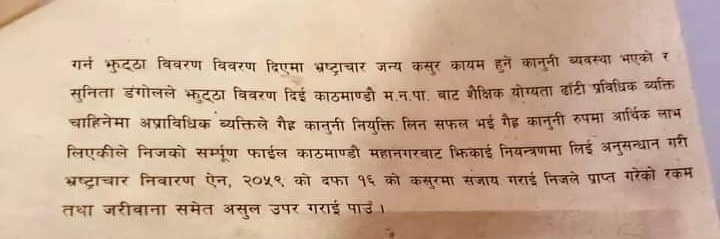 गर्न झुट्ठा बिवरण विवरण दिएमा भ्रष्ट्राचार जन्य कसुर कायम हुने कानुनी ब्यवस्था भएको र
सुनिता डंगोलले झुट्ठा विवरण दिई काठमाण्डौ म.न.पा. बाट शैक्षिक योग्यता ढाँटी प्रविधिक ब्यक्ति
चाहिनेमा अप्राविधिक ब्यक्तिले गैह्र कानुनी नियुक्ति लिन सफल भई गैह्र कानुनी रुपमा आर्थिक लाभ
लिएकीले निजको सर्म्पूण फाईल काठमाण्डौ महानगरबाट झिकाई नियन्त्रणमा लिई अनुसन्धान गरी
भ्रष्ट्राचार निवारण ऐन, २०५९ को दफा १६ को कसुरमा संजाय गराई निजले प्राप्त गरेको रकम
तथा जरीवाना समेत असुल उपर गराई पाउँ ।